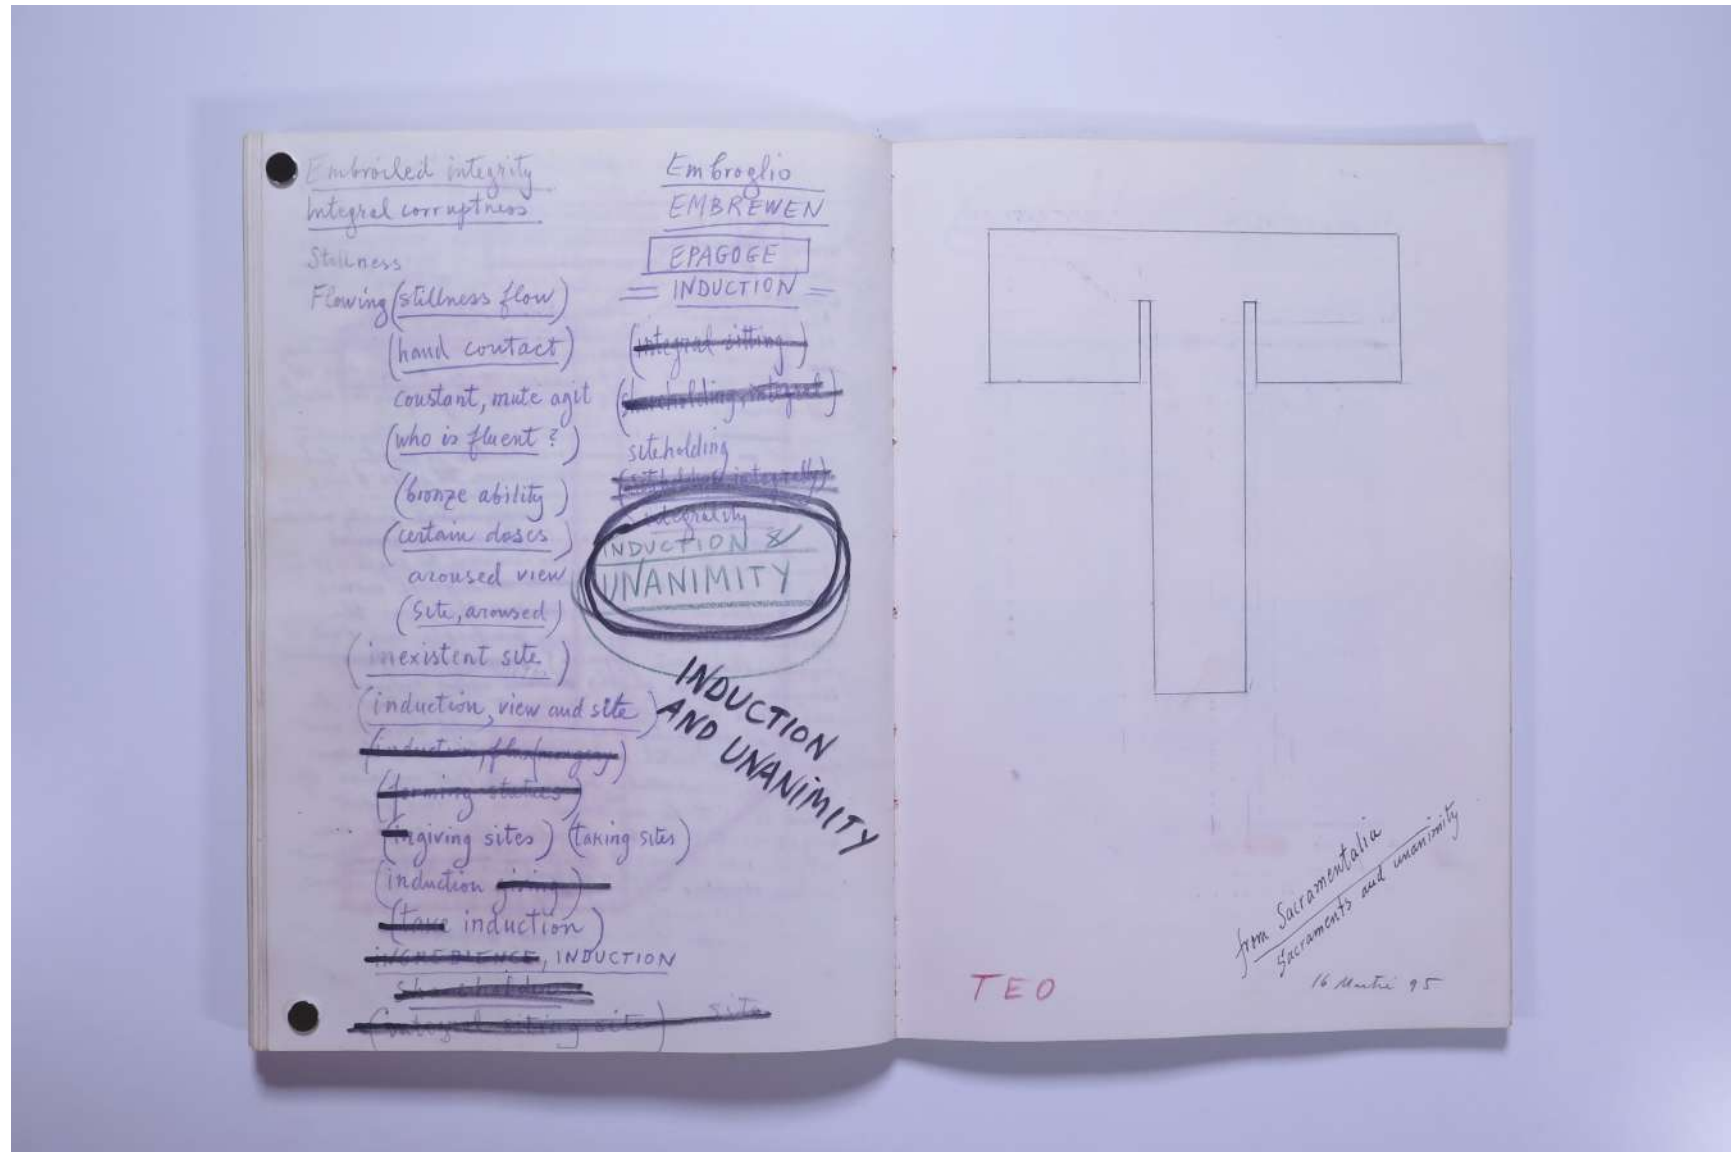 Embroiled integrity
Integral corruptness
Stillness
Flowing (stillness flow)
(hand contact)
constant, mute agit
(who is fluent?)
(bronze ability)
(certain doses)
aroused view
(site, aroused)
(inexistent site)
(induction, view and site)
(forming statues)
(ingiving sites) (taking sites)
(induction giving)
(take induction)
INGREDIENCE, INDUCTION
(integral siting site) site
Embroglio
EMBREWEN
EPAGOGE
= INDUCTION =
(integral sitting)
(shareholding, integral)
siteholding
integrality
INDUCTION &
UNANIMITY
INDUCTION
AND UNANIMITY
from Sacramentalia
Sacraments and unanimity
16 95
TEO